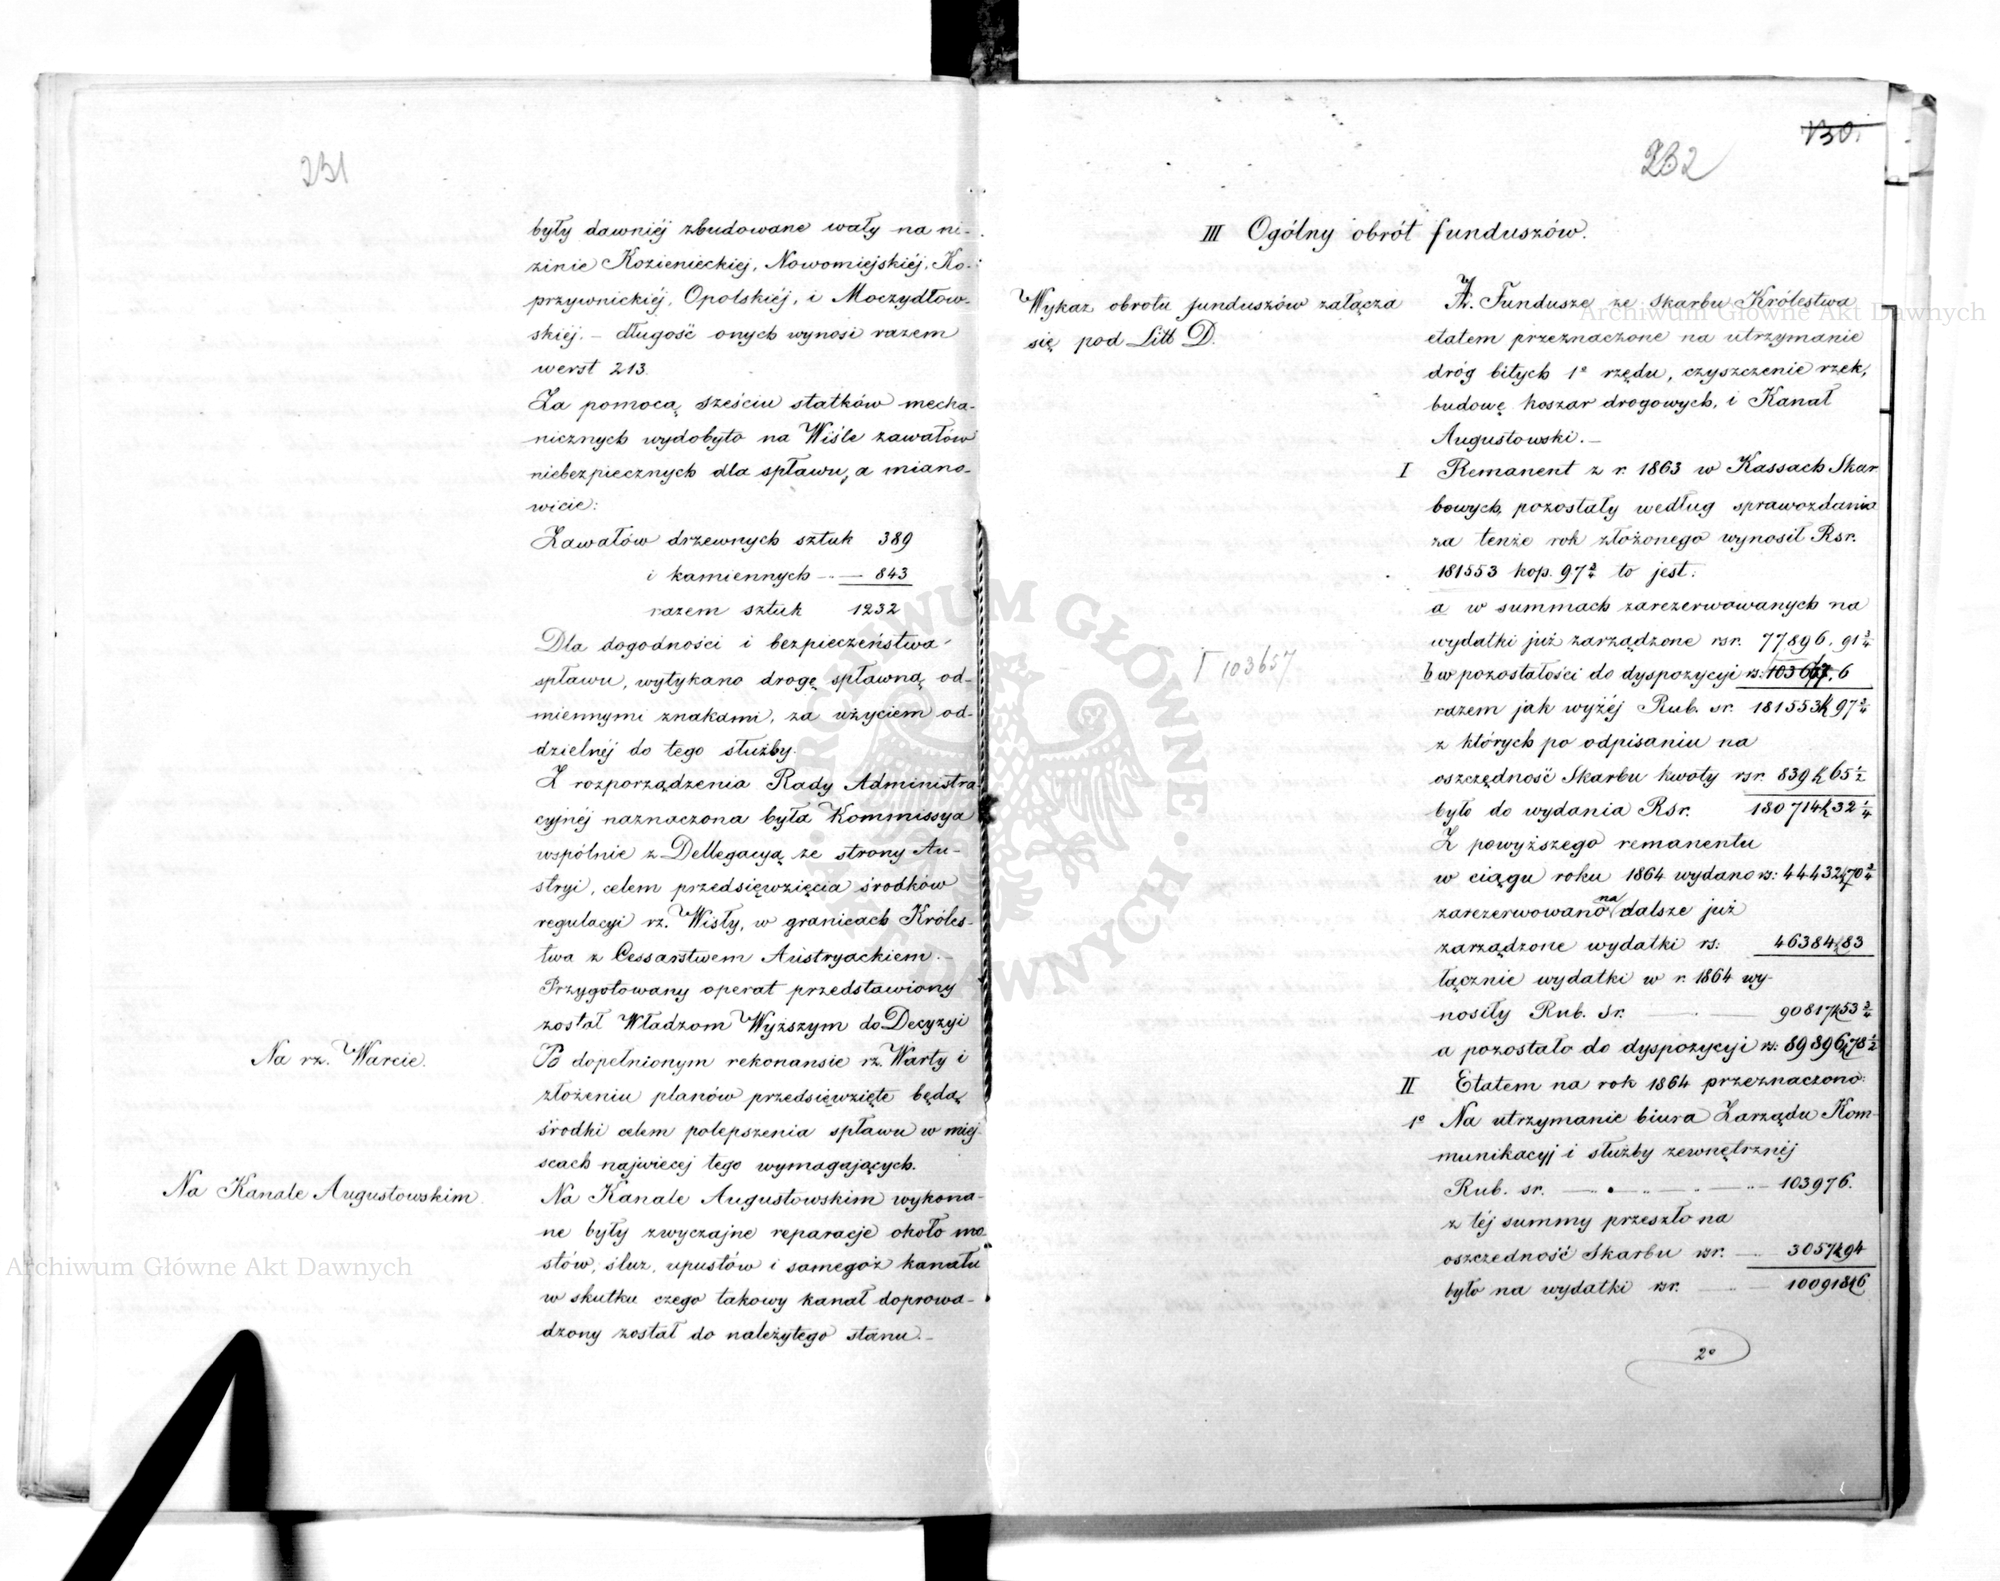 231
były dawniéj zbudowane wały na ni-
zinie Kozienieckiej, Nowomiejskiéj, Ko-
przywnickiéj, Opolskiéj, i Moczydłow-
skiéj. – długość onych wynosi razem
werst 213.
Za pomocą sześciu statków mecha-
nicznych wydobyto na Wiśle zawałów
niebezpiecznych dla spławu, a miano-
wicie:
Zawałów drzewnych sztuk 389
i kamiennych — 843
razem sztuk 1232
Dla dogodności i bezpieczeństwa
spławu, wytykano drogę spławną od-
miennymi znakami, za użyciem od-
dzielnéj do tego służby.
Z rozporządzenia Rady Administra-
cyjnéj naznaczona była Kommissya
wspólnie z Dellegacyą ze strony Au-
stryi, celem przedsięwzięcia środków
regulacyi rz. Wisły, w granicach Króles-
twa z Cessarstwem Austryackiem. –
Przygotowany operat przedstawiony
został Władzom Wyższym do Decyzyi
Na rz. Warcie. Po dopełnionym rekonansie rz. Warty i
złożeniu planów przedsięwzięte będą
środki celem polepszenia spławu w miej-
scach najwiecej tego wymagających.
Na Kanale Augustowskim. Na Kanale Augustowskim wykona-
ne były zwyczajne reparacje około mo-
stów, śluz, upustów i samegoż kanału
w skutku czego takowy kanał doprowa-
dzony został do należytego stanu. –
130.
232
III Ogólny obrót funduszów.
Wykaz obrotu funduszów załącza
się pod Litt D.
A. Fundusze ze Skarbu Królestwa
etatem przeznaczone na utrzymanie
dróg bitych 1º rzędu, czyszczenie rzek,
budowę koszar drogowych, i Kanał
Augustowski. –
I Remanent z r. 1863 w Kassach Skar
bowych, pozostały według sprawozdania
za tenże rok złożonego wynosił Rsr.
181553 kop. 97 3/4 to jest:
a w summach zarezerwowanych na
wydatki już zarządzone rsr. 77896. 91 3/4
b w pozostałości do dyspozycyi rs: 103657. 6
Γ 103657
razem jak wyżéj Rub. sr. 181553 k 97 3/4
z których po odpisaniu na
oszczędność Skarbu kwoty rsr. 839 k 65 1/2
było do wydania Rsr. 180714 k 32 1/4
Z powyższego remanentu
w ciągu roku 1864 wydano rs: 44432 k 70 3/4
zarezerwowano na dalsze już
zarządzone wydatki rs: 46384 k 83
łącznie wydatki w r. 1864 wy-
nosiły Rub. Sr. — 90817 k 53 3/4
a pozostało do dyspozycyi rs: 89896 k 78 1/2
II Etatem na rok 1864 przeznaczono:
1º Na utrzymanie biura Zarządu Kom-
munikacyj i służby zewnętrznéj
Rub. sr. — 103976.
z téj summy przeszło na
oszczedność Skarbu rsr. — 3057 k 94
było na wydatki rsr. — 100918 k 6
2º
Archiwum Główne Akt Dawnych
Archiwum Główne Akt Dawnych
ARCHIWUM GŁÓWNE AKT DAWNYCH